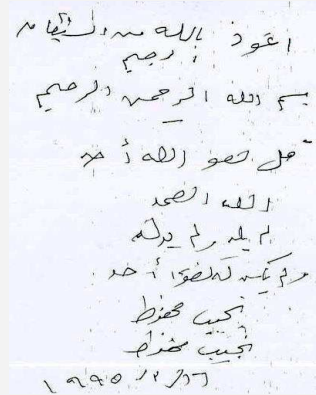 اعوذ بالله من الشيطان
الرجيم
بسم الله الرحمن الرحيم
قل هو الله أحد
الله الصمد
لم يلد ولم يولد
ولم يكن له كفوا أحد
نجيب محفوظ
نجيب محفوظ
١٩٩٥/٢/١٦